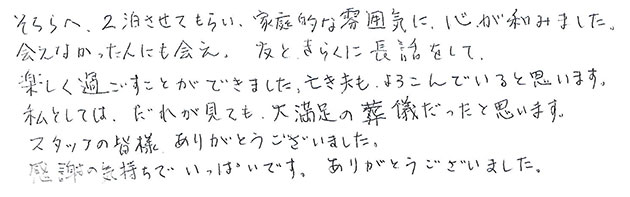 そちらへ、2泊させてもらい、家庭的な雰囲気に、心が和みました。
会えなかった人にも会え、友と、きらくに長話をして、
楽しく過ごすことができました、亡き夫も、よろこんでいると思います。
私としては、だれが見ても、大満足の葬儀だったと思います。
スタッフの皆様、ありがとうございました。
感謝の気持ちでいっぱいです。ありがとうございました。